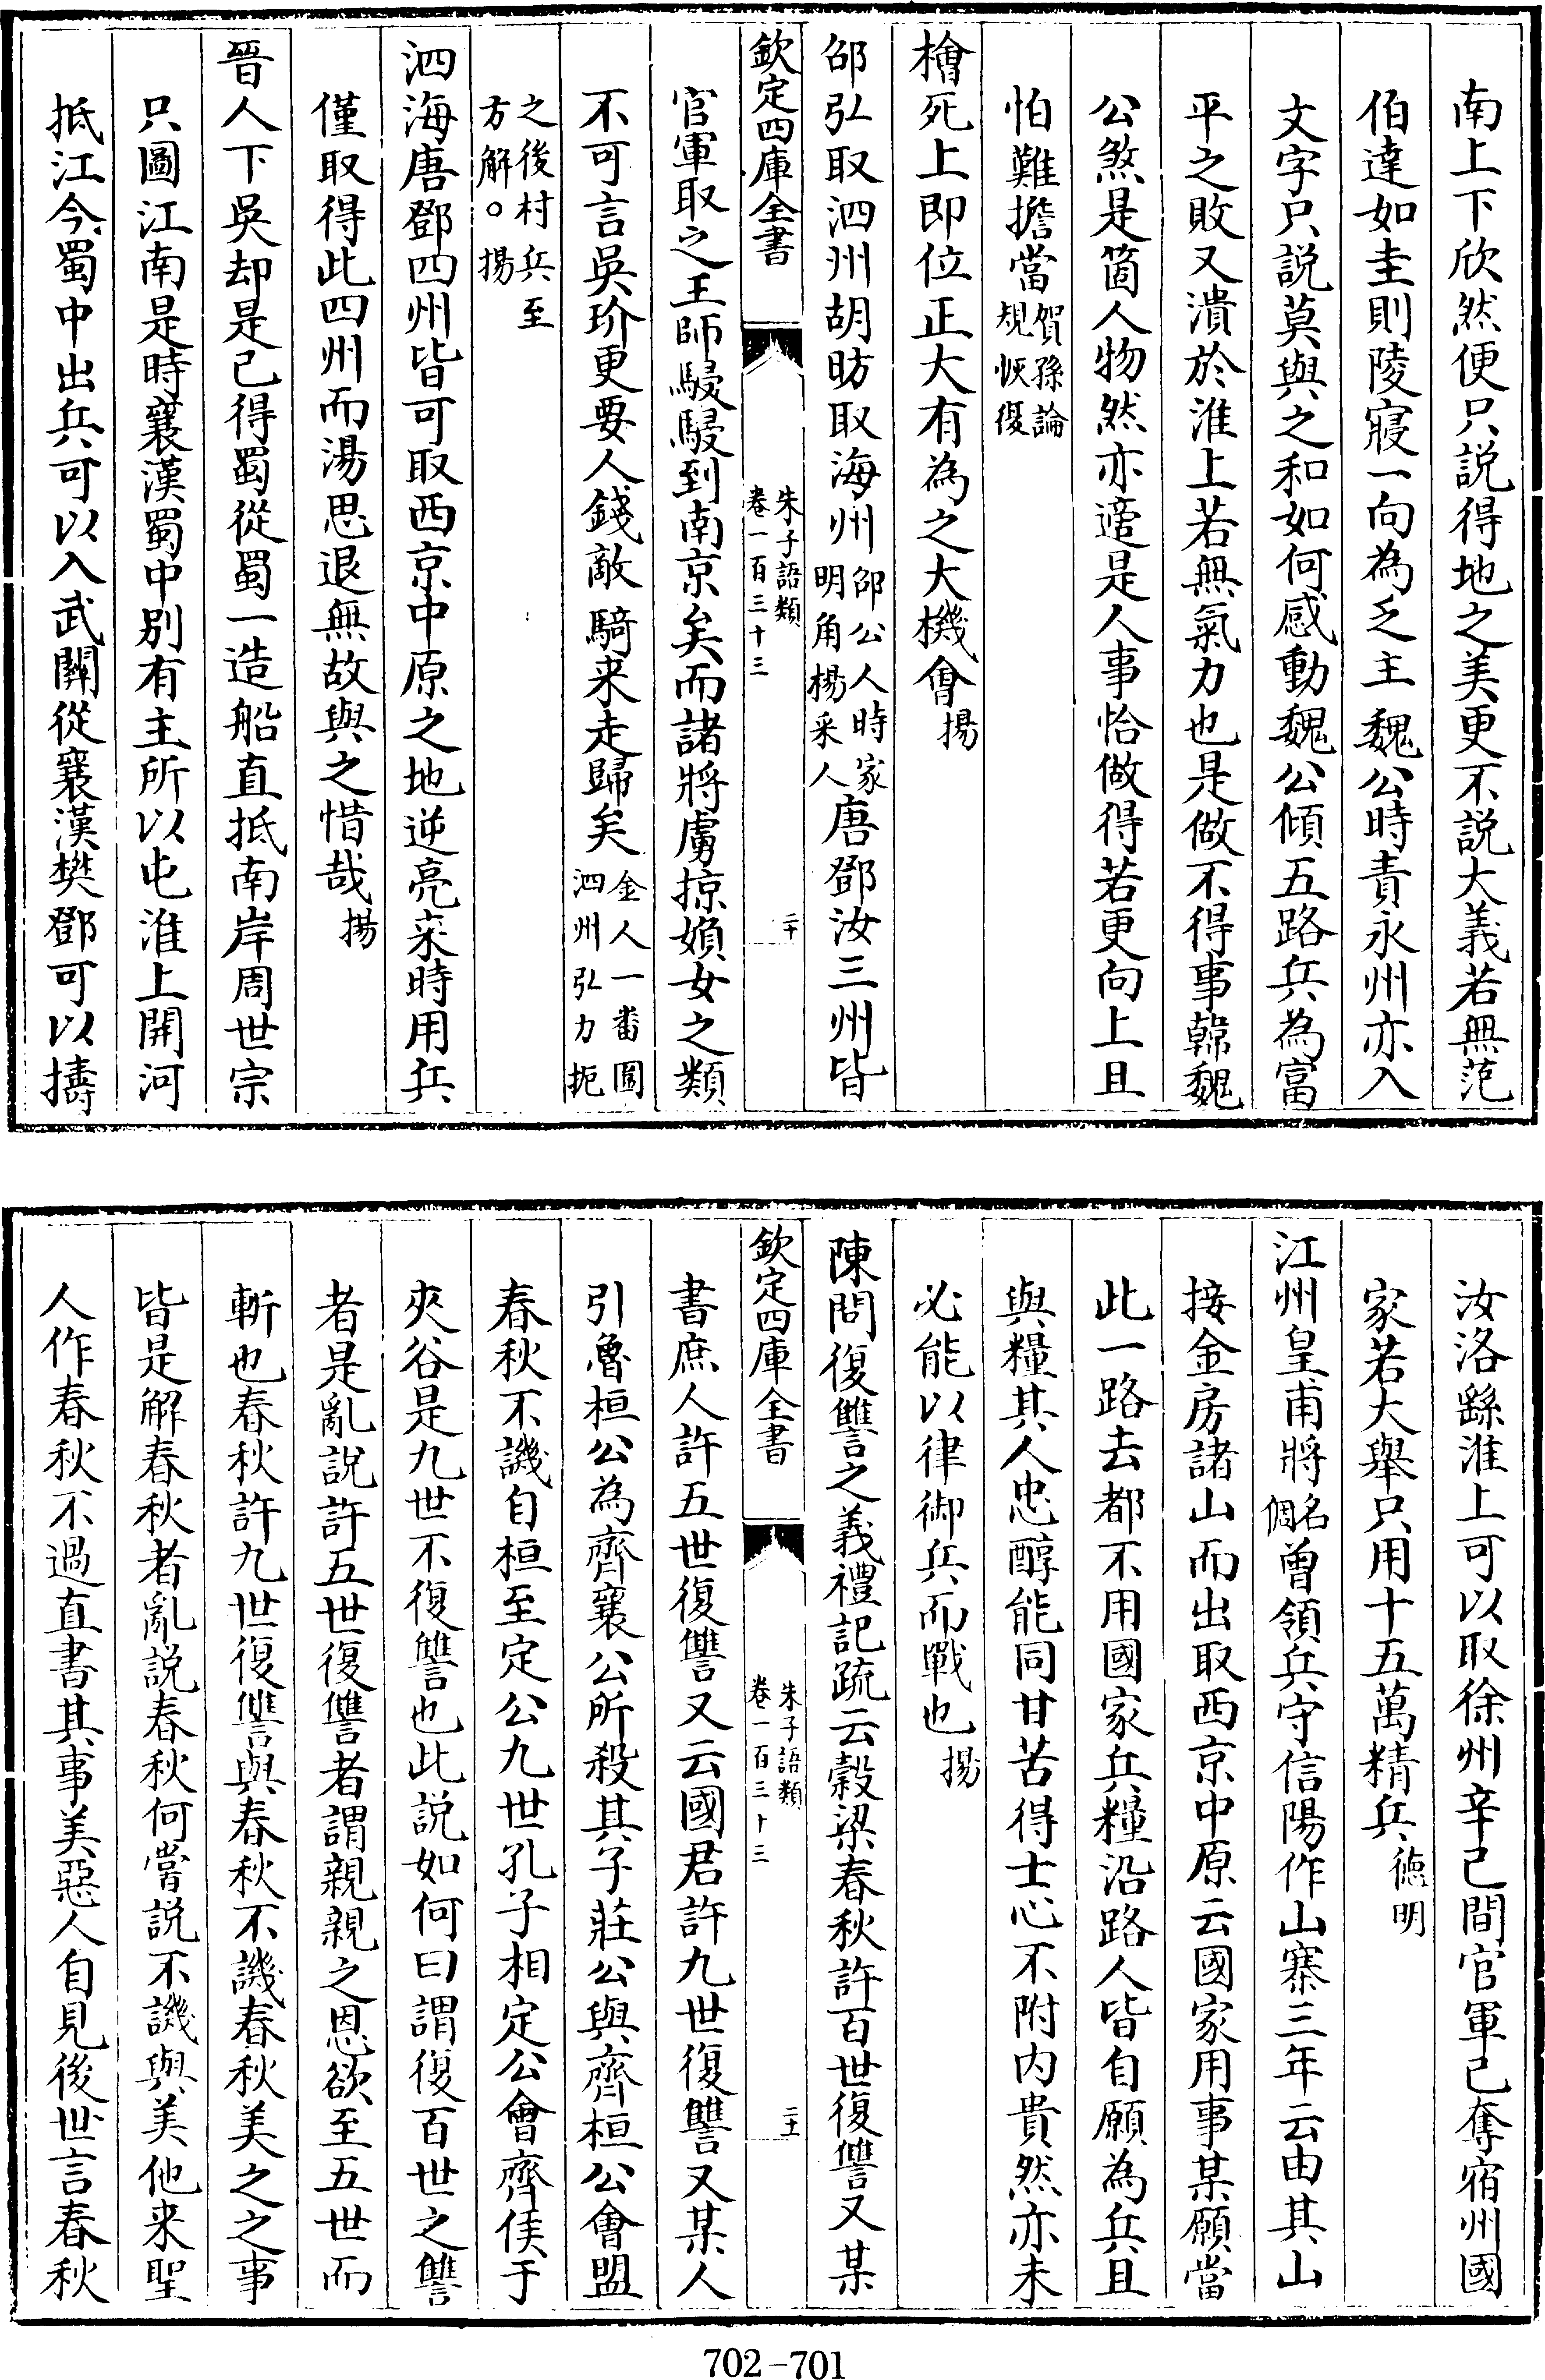 南上下欣然便只説得地之美更不説大義若無范
伯達如圭則陵寢一向為乏主魏公時責永州亦入
文字只説莫與之和如何感動魏公傾五路兵為富
平之敗又潰於淮上若無氣力也是做不得事韓魏
公煞是箇人物然亦適是人事恰做得若更向上且
怕難擔當賀孫論規恢復
檜死上即位正大有為之大機會揚
邵弘取泗州胡昉取海州邵公人時家明角楊采人唐鄧汝三州皆
欽定四庫全書
朱子語類
卷一百三十三
二十
官軍取之王師駸駸到南京矣而諸將虜掠婦女之類
不可言吳玠更要人錢敵騎来走歸矣金人一畨圍泗州弘力扼
之後村兵至方解○揚
泗海唐鄧四州皆可取西京中原之地逆亮來時用兵
僅取得此四州而湯思退無故與之惜哉揚
晉人下吳却是已得蜀從蜀一造船直抵南岸周世宗
只圖江南是時襄漢蜀中別有主所以屯淮上開河
抵江今蜀中出兵可以入武關從襄漢樊鄧可以擣
汝洛繇淮上可以取徐州辛巳間官軍已奪宿州國
家若大舉只用十五萬精兵德明
江州皇甫將名倜曾領兵守信陽作山寨三年云由其山
接金房諸山而出取西京中原云國家用事某願當
此一路去都不用國家兵糧沿路人皆自願為兵且
與糧其人忠醇能同甘苦得士心不附内貴然亦未
必能以律御兵而戰也揚
陳問復讐之義禮記疏云穀梁春秋許百世復讐又某
欽定四庫全書
朱子語類
卷一百三十三
二十一
書庶人許五世復讐又云國君許九世復讐又某人
引魯桓公為齊襄公所殺其子莊公與齊桓公會盟
春秋不譏自桓至定公九世孔子相定公會齊侯于
夾谷是九世不復讐也此説如何曰謂復百世之讐
者是亂説許五世復讐者謂親親之恩欲至五世而
斬也春秋許九世復讐與春秋不譏春秋美之之事
皆是解春秋者亂説春秋何嘗説不譏與美他来聖
人作春秋不過直書其事美惡人自見後世言春秋
702-701